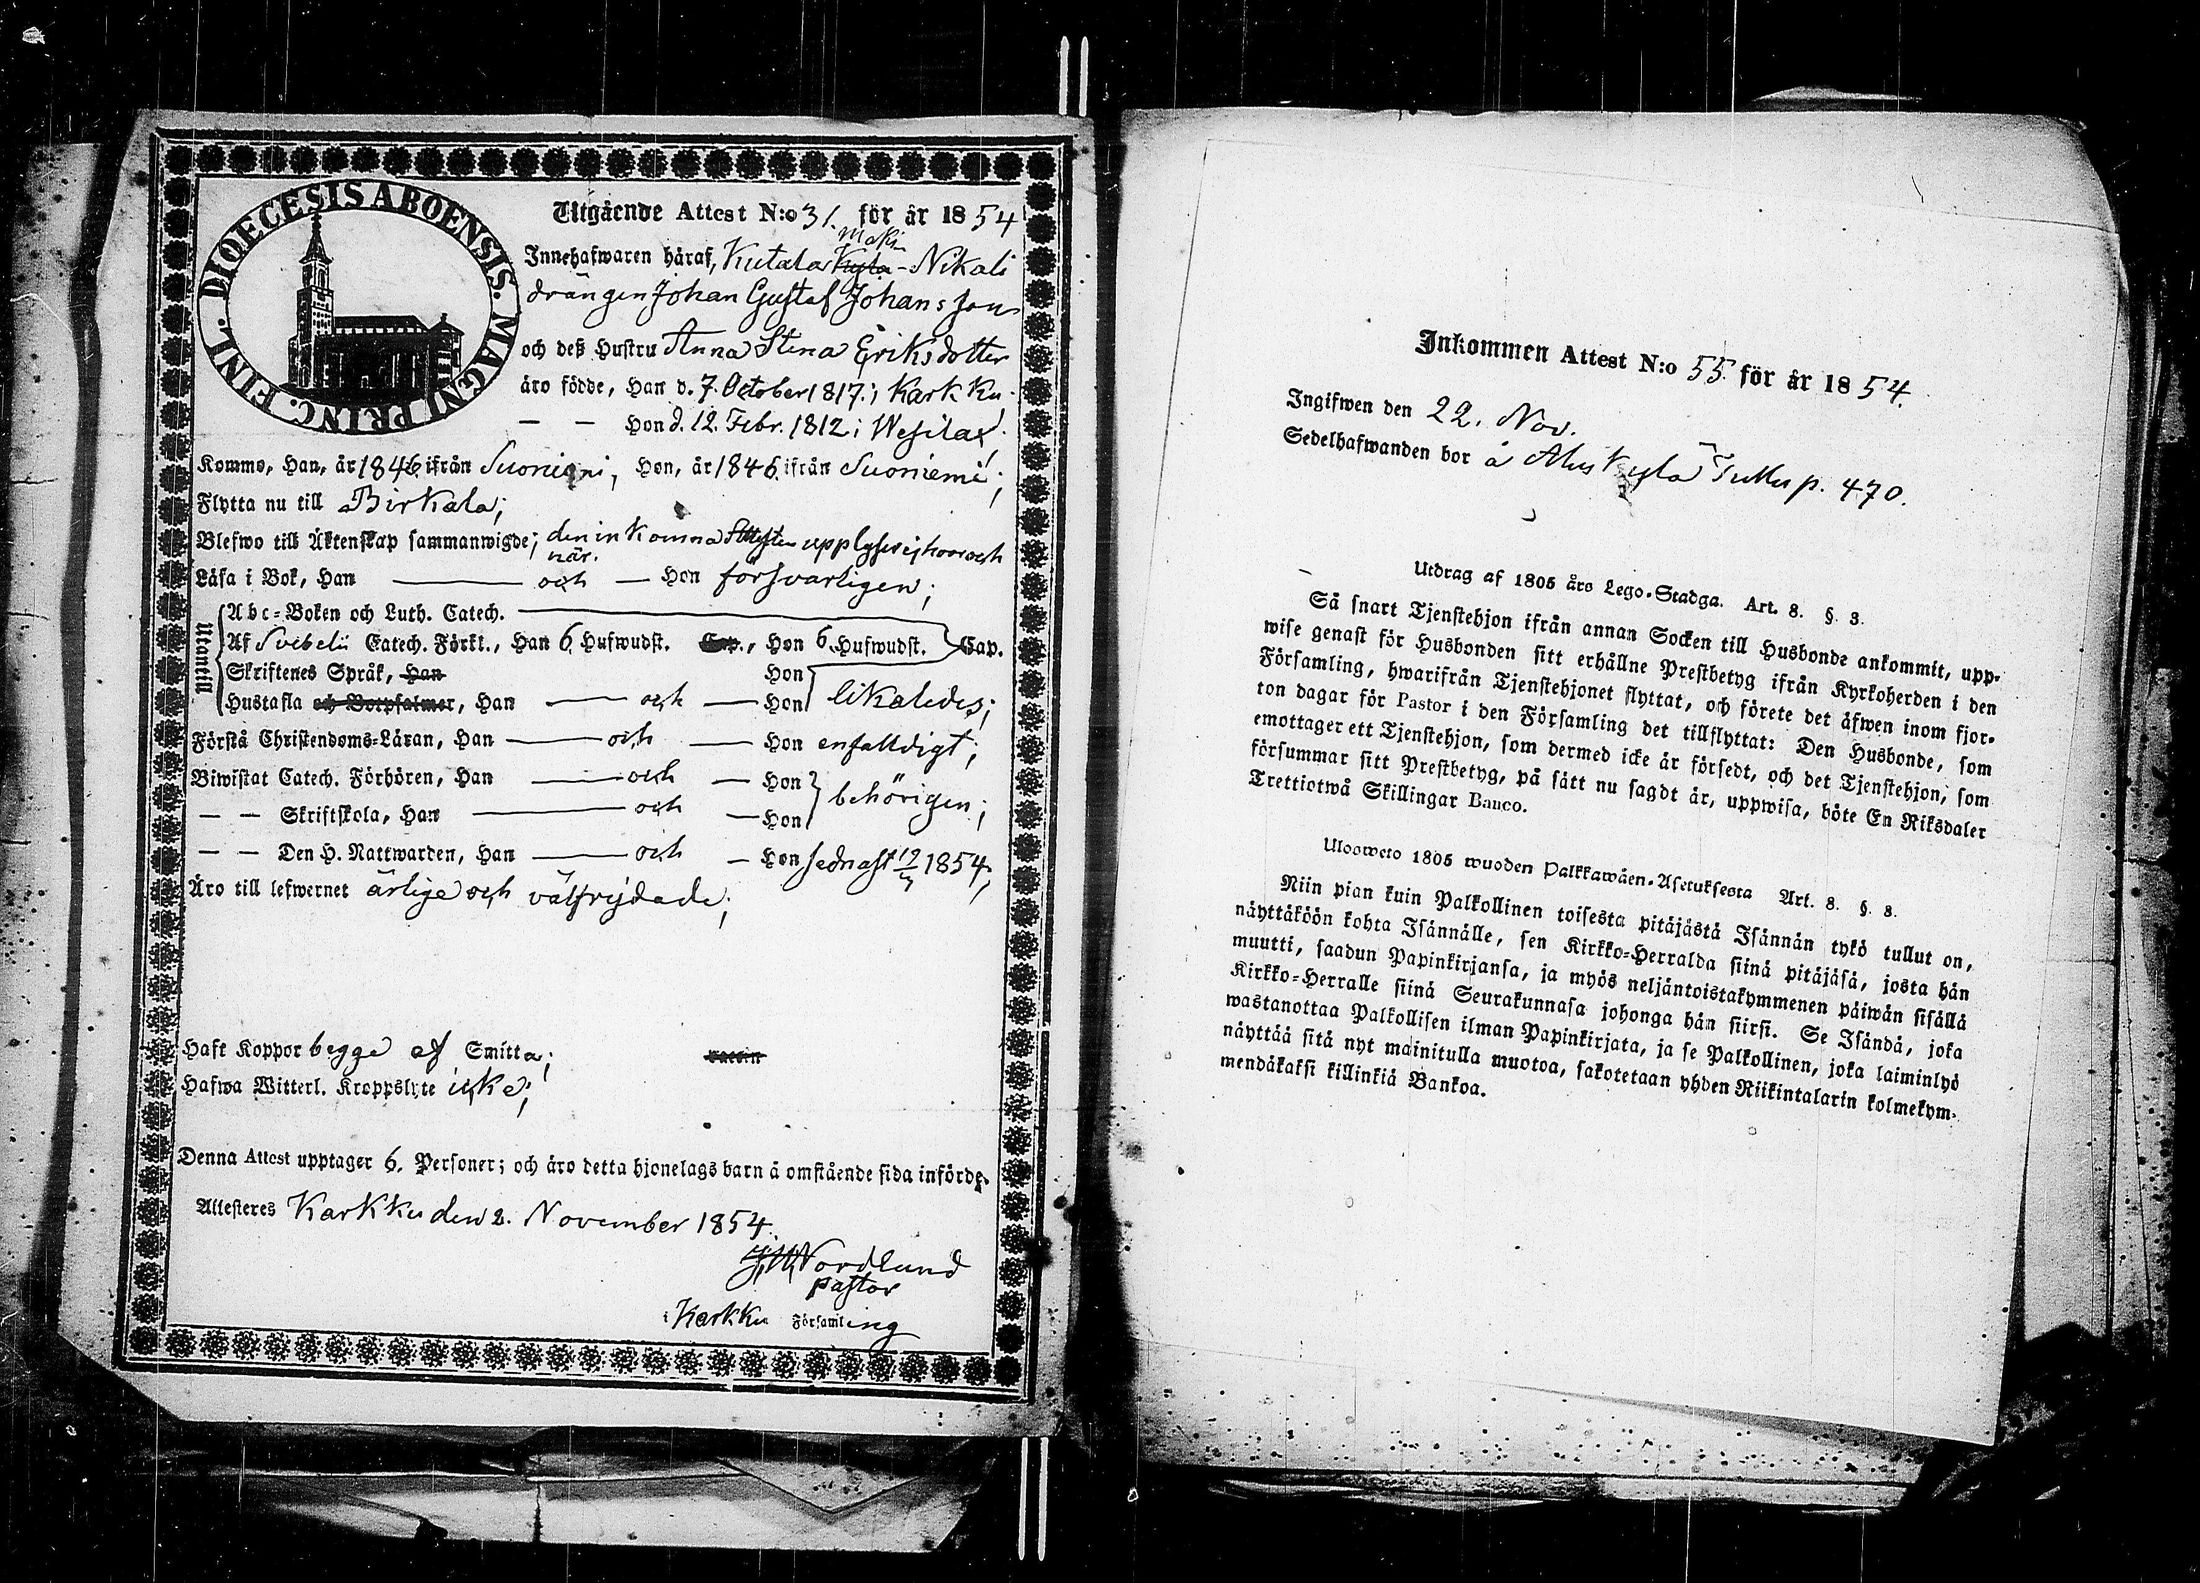 DIOECESIS ABOENSIS. MAGNI PRINC. FINL.
Utgående Attest N:o 31. för år 1854
Mäki
Innehafwaren häraf, Kutala Kyla-Nikali
drängen Johan Gustaf Johansson
och deß Hustru Anna Stina Eriksdotter
äro födde, Han d. 7. October 1817. i Karkku.
— — Hon d. 12. Febr. 1812 i Wesilax!
Kommo, Han, år 1846 ifrån Suoniemi, Hon, år 1846. ifrån Suoniemi;
Flytta nu till Birkala;
Blefwo till Äktenskap sammanwigde; den inkomna Attesten upplyser ej hvar och
när.
Läsa i Bok, Han — och — Hon försvarligen;
Utantill
Abc-Boken och Luth. Catech.
Af Svebelii Catech. Förkl., Han 6 Hufwudst. Cap., Hon 6. Hufwudst. Cap.
Skriftenes Språk, Han Hon
Hustafla och Botpsalmer, Han — och — Hon likaledes;
Förstå Christendoms-Läran, Han — och — Hon enfaldigt;
Biwistat Catech. Förhören, Han — och — Hon
behörigen;
— — Skriftskola, Han — och — Hon
— — Den H. Nattwarden, Han — och — Hon sednast 1854;
Äro till lefwernet ärlige och välfrejdade;
Haft Koppor begge af Smitta;
Hafwa Witterl. Kroppslyte icke;
Denna Attest upptager 6. Personer; och äro detta hjonelags barn å omstående sida införde.
Attesteres Karkku den 2. November 1854.
Nordlund
pastor
i Karkku Församling
Inkommen Attest N:o 55. för år 1854.
Ingifwen den 22. Nov.
Sedelhafwanden bor å Aluskylä Tullu p. 470.
Utdrag af 1805 års Lego-Stadga. Art. 8. §. 3.
Så snart Tjenstehjon ifrån annan Socken till Husbonde ankommit, upp-
wise genast för Husbonden sitt erhållne Prestbetyg ifrån Kyrkoherden i den
Församling, hwarifrån Tjenstehjonet flyttat, och förete det äfwen inom fjor-
ton dagar för Pastor i den Församling det tillflyttat: Den Husbonde, som
emottager ett Tjenstehjon, som dermed icke är försedt, och det Tjenstehjon, som
försummar sitt Prestbetyg, på sätt nu sagdt är, uppwisa, böte En Riksdaler
Trettiotwå Skillingar Banco.
Ulosweto 1805 wuoden Palkkawäen-Asetuksesta Art. 8. §. 3.
Niin pian kuin Palkollinen toisesta pitäjästä Isännän tykö tullut on,
näyttäköön kohta Isännälle, sen Kirkko-Herralda siinä pitäjäsä, josta hän
muutti, saadun Papinkirjansa, ja myös neljäntoistakymmenen päiwän sisällä
Kirkko-Herralle siinä Seurakunnasa johonga hän siirsi. Se Isändä, joka
wastanottaa Palkollisen ilman Papinkirjata, ja se Palkollinen, joka laiminlyö
näyttää sitä nyt mainitulla muotoa, sakotetaan yhden Riikintalarin kolmekym-
mendäkaksi killinkiä Bankoa.